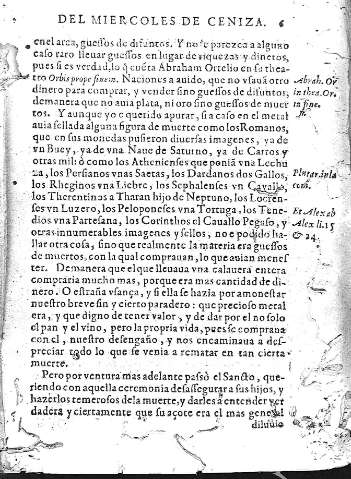 DEL MIERCOLES DE CENIZA. 6
en el arca, guessos de difuntos. Y no se parezca a alguno
caso raro lleuar guessos en lugar de riquezas y dineros,
pues si es verdad, lo q̃ cuẽta Abraham Ortelio en su thea-
tro Orbis prope finem. Naciones a auido, que no vsauã otro
dinero para comprar, y vender sino guessos de difuntos,
demanera que no auia plata, ni oro sino guessos de muer
tos. Y aunque yo e querido apurar, si a caso en el metal
auia sellada alguna figura de muerte como los Romanos,
que en sus monedas pusieron diuersas imagenes, ya de
vn Buey, ya de vna Naue de Saturno, ya de Carros y
otras mil ò como los Athenienses que poniã vna Lechu
za, los Persianos vnas Saetas, los Dardanos dos Gallos,
los Rheginos vna Liebre, los Sephalenses vn Cavallo,
los Therentinas a Tharan hijo de Neptuno, los Locren-
ses vn Luzero, los Peloponeses vna Tortuga, los Tene-
dios vna Partesana, los Corinthos el Cauallo Pegaso, y
otras innumerables imagenes y sellos, no e podido ha-
llar otra cosa, sino que realmente la materia era guessos
de muertos, con la qual comprauan, lo que auian menes
ter. Demanera que el que lleuaua vna calauera entera
compraria mucho mas, porque era mas cantidad de di-
nero. O estraña vsança, y si ella se hazia por amonestar
nuestro breve fin y cierto paradero: que precioso metal
era, y que digno de tener valor, y de dar por el no solo
el pan y el vino, pero la propria vida, pues se compraua
con el, nuestro desengaño, y nos encaminaua a des-
preciar todo lo que se venia a rematar en tan cierta
muerte.
Pero por ventura mas adelante passò el Sancto, que-
riendo con aquella ceremonia desassegurar a sus hijos, y
hazerlos temerosos de la muerte, y darles a entender ver
dadera y ciertamente que su açote era el mas general
diluuio
Abrah. Or
in thea. Or.
in fine.
Plutar. in la
con.
Et Alex ab
Alex li. 15
& 24.